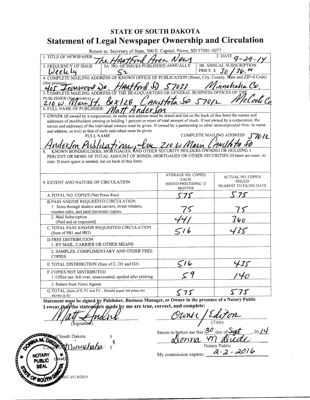 STATE OF SOUTH DAKOTA
Statement of Legal Newspaper Ownership and Circulation
Return to: Secretary of State, 500 E. Capitol, Pierre, SD 57501-5077
1. TITLE OF NEWSPAPER The Hartford Area News
2. DATE 9-29-14
3. FREQUENCY OF ISSUE Weekly
3A. NO. OF ISSUES PUBLISHED ANNUALLY 52
3B. ANNUAL SUBSCRIPTION PRICE $ 30/36.00
4. COMPLETE MAILING ADDRESS OF KNOWN OFFICE OF PUBLICATION (Street, City, County, State and ZIP+4 Code)
Hartford SD 57033 Minnehaha Co.
5. COMPLETE MAILING ADDRESS OF THE HEADQUARTERS OF GENERAL BUSINESS OFFICES OF THE
PUBLISHER
210 W. Main St. Box 128 Canistota SD 57012 McCook Co
6. FULL NAME OF PUBLISHER: Matt Anderson
7. OWNER (If owned by a corporation, its name and address must be stated and list on the back of this form the names and
addresses of stockholders owning or holding 1 percent or more of total amount of stock. If not owned by a corporation, the
names and addresses of the individual owners must be given. If owned by a partnership or other unincorporated firm, its name
and address, as well as that of each individual must be given
FULL NAME COMPLETE MAILING ADDRESS 57012
Anderson Publications, Inc 210 W Main Canistota SD
8. KNOWN BONDHOLDERS, MORTGAGES, AND OTHER SECURITY HOLDERS OWNING OR HOLDING 1
PERCENT OR MORE OF TOTAL AMOUNT OF BONDS, MORTGAGES OR OTHER SECURITIES (If there are none, so
state. If more space is needed, list on back of this form.
9. EXTENT AND NATURE OF CIRCULATION
AVERAGE NO. COPIES EACH ISSUED PRECEDING 12 MONTHS
ACTUAL NO. COPIES ISSUED NEAREST TO FILING DATE
A. TOTAL NO. COPIES (Net Press Run) 575 575
B. PAID AND/OR REQUESTED CIRCULATION
1. Sales through dealers and carriers, street vendors,
counter sales, and paid electronic copies 75 75
2. Mail Subscription
(Paid and or requested) 441 360
C. TOTAL PAID AND/OR REQUESTED CIRCULATION
(Sum of 9B1 and 9B2) 516 435
D. FREE DISTRIBUTION
1. BY MAIL, CARRIER OR OTHER MEANS
2. SAMPLES, COMPLIMENTARY AND OTHER FREE
COPIES
E. TOTAL DISTRIBUTION (Sum of C, D1 and D2) 516 435
F. COPIES NOT DISTRIBUTED
1. Office use, left over, unaccounted, spoiled after printing 59 140
2. Return from News Agents
G. TOTAL (Sum of E, F1 and F2 - Should equal net press run
shown in A) 575 575
Statement must be signed by Publisher, Business Manager, or Owner in the presence of a Notary Public
I swear that the statements made by me are true, correct, and complete:
Matt Anderson Owner/Editor
(Signature) (Title)
South Dakota
Minnehaha
Sworn to before me this 30 day of Sept, 2014
Donna M Diede
Notary Public
My commission expires: 2-2-2016
DONNA M. DIEDE
NOTARY
PUBLIC
SEAL
SOUTH DAKOTA